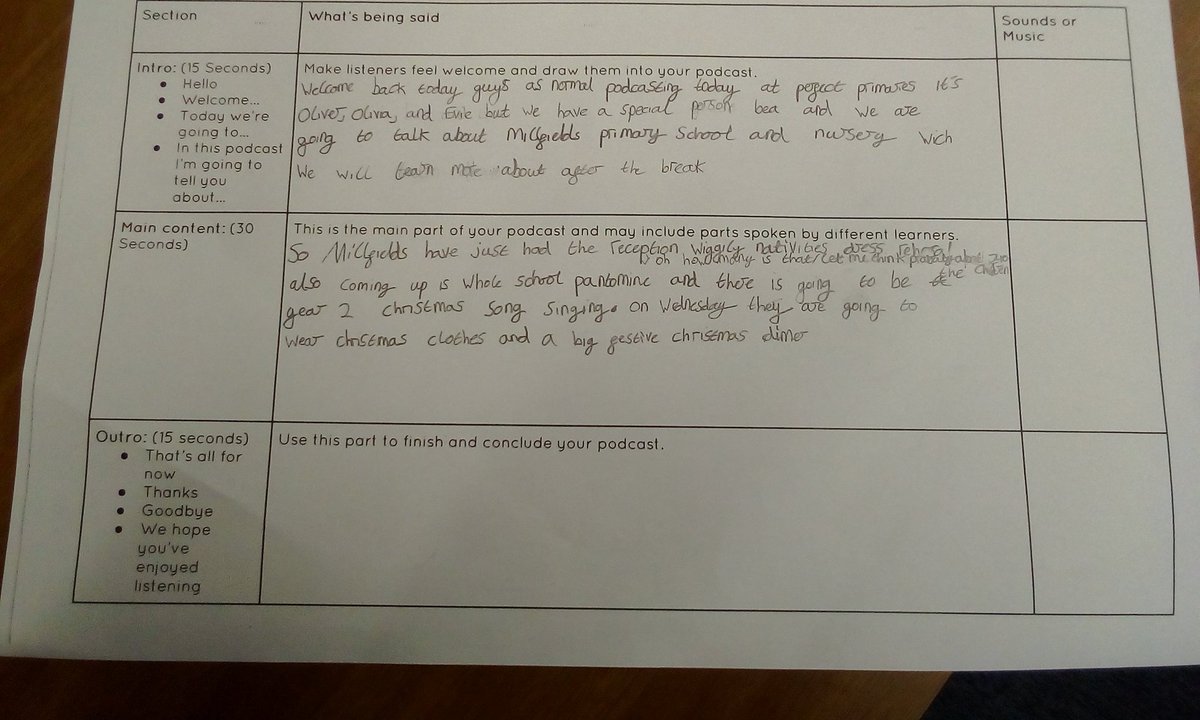 Section
What's being said
Sounds or
Music
Intro: (15 Seconds)
• Hello
• Welcome...
• Today we're
going to...
• In this podcast
I'm going to
tell you
about...
Make listeners feel welcome and draw them into your podcast.
Welcome back today guys as normal podcasting today at pefect primares it's
Oliver, Olivia, and Evie but we have a special person bea and we are
going to talk about Millfields primary School and nursery wich
We will learn more about after the break
Main content: (30
Seconds)
This is the main part of your podcast and may include parts spoken by different learners.
So Millfields have just had the reception wiggily nativities dress rehersal
oh how many is that let me think probably about 210
also coming up is whole school pantomine and there is going to be the children
year 2 christmas song singing. on Wednesday they are going to
wear christmas clothes and a big festive christmas dinner
Outro: (15 seconds)
• That's all for
now
• Thanks
• Goodbye
• We hope
you've
enjoyed
listening
Use this part to finish and conclude your podcast.